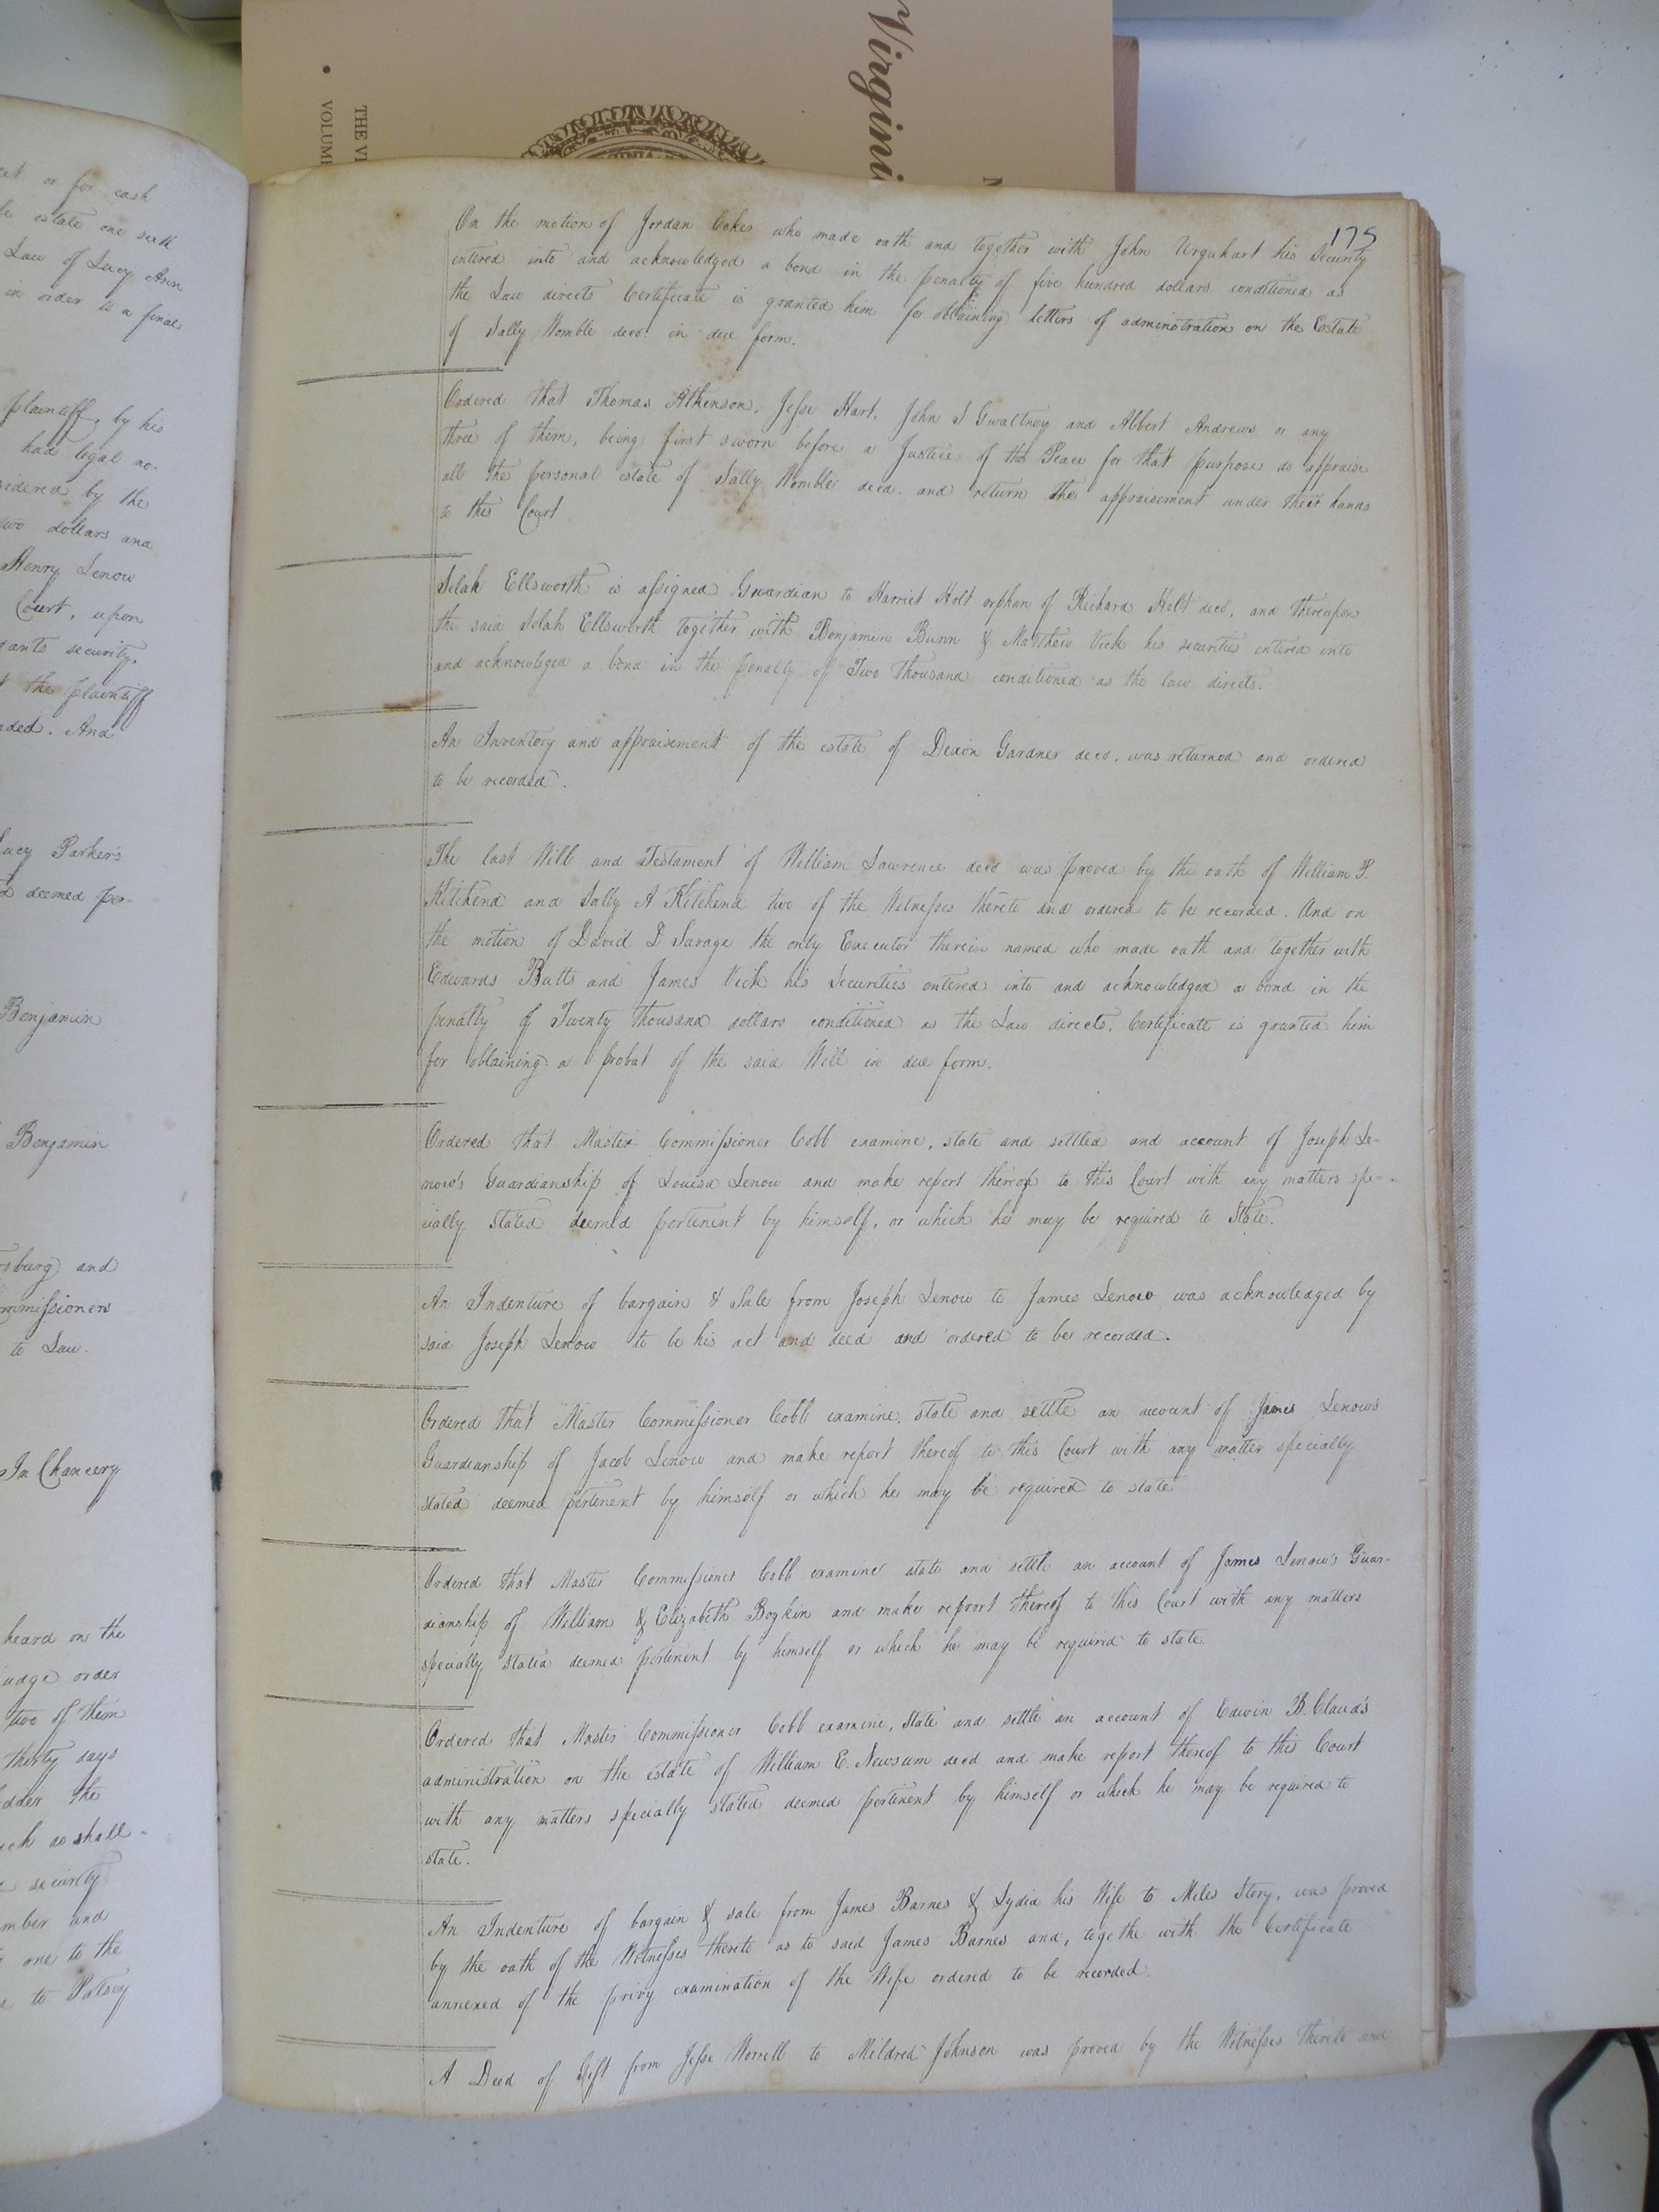 Virgini
THE VI
VOLUM
at or for cash
estate one sixth
Law of Lucy Ann
in order to a final
plaintiff, by his
had legal no-
sidered by the
two dollars and
Henry Lenow
Court, upon
security,
the plaintiff
aded. And
Lucy Parker's
deemed per-
Benjamin
Benjamin
rsburg and
mmissioners
to Law.
In Chancery
heard on the
udge order
two of them
thirty days
dder the
ch as shall
security
mber and
one to the
to Patsey
175
On the motion of Jordan Cokes who made oath and together with John Urquhart his Security
entered into and acknowledged a bond in the penalty of five hundred dollars conditioned as
the Law directs Certificate is granted him for obtaining letters of administration on the Estate
of Sally Womble decd. in due form.
Ordered that Thomas Atkinson, Jesse Hart, John J Gwaltney and Albert Andrews or any
three of them, being first sworn before a Justice of the Peace for that purpose do appraise
all the personal estate of Sally Womble decd. and return the appraisement under their hands
to this Court
Selah Ellsworth is assigned Guardian to Harriet Holt orphan of Richard Holt decd. and thereupon
the said Selah Ellsworth together with Benjamin Bunn & Matthew Vick his securities entered into
and acknowleged a bond in the penalty of Two Thousand conditioned as the law directs.
An Inventory and appraisement of the estate of Dixon Gardner decd. was returned and ordered
to be recorded.
The last Will and Testament of William Lawrence decd was proved by the oath of William P.
Kitchend and Sally A Kitchend two of the Witnesses thereto and ordered to be recorded. And on
the motion of David D Savage the only Executor therein named who made oath and together with
Edwards Butts and James Vick his Securities entered into and acknowledged a bond in the
penalty of Twenty thousand dollars conditioned as the Law directs, Certificate is granted him
for obtaining a probat of the said Will in due form.
Ordered that Master Commissioner Cobb examine, state and settled and account of Joseph Le-
now's Guardianship of Louisa Lenow and make report thereof to this Court with any matters spe-
cially stated deemed pertenent by himself, or which he may be required to State.
An Indenture of bargain & Sale from Joseph Lenow to James Lenow was acknowledged by
said Joseph Lenow to be his act and deed and ordered to be recorded.
Ordered that Master Commissioner Cobb examine, state and settle an account of James Lenows
Guardianship of Jacob Lenow and make report thereof to this Court with any matter specially
stated deemed pertenent by himself or which he may be required to state
Ordered that Master Commissioner Cobb examine state and settle an account of James Lenow's Guar-
dianship of William & Elizabeth Boykin and make report thereof to this Court with any matters
specially stated deemed pertenent by himself or which he may be required to state.
Ordered that Master Commissioner Cobb examine, State and settle an account of Edwin B. Claud's
administration on the estate of William E. Newsum decd and make report thereof to this Court
with any matters specially stated deemed pertenent by himself or which he may be required to
state.
An Indenture of bargain & sale from James Barnes & Lydia his Wife to Miles Story, was proved
by the oath of the Witnesses thereto as to said James Barnes and, togethe with the Certificate
annexed of the privy examination of the Wife ordered to be recorded.
A Deed of Gift from Jesse Worrell to Mildred Johnson was proved by the Witnesses thereto and